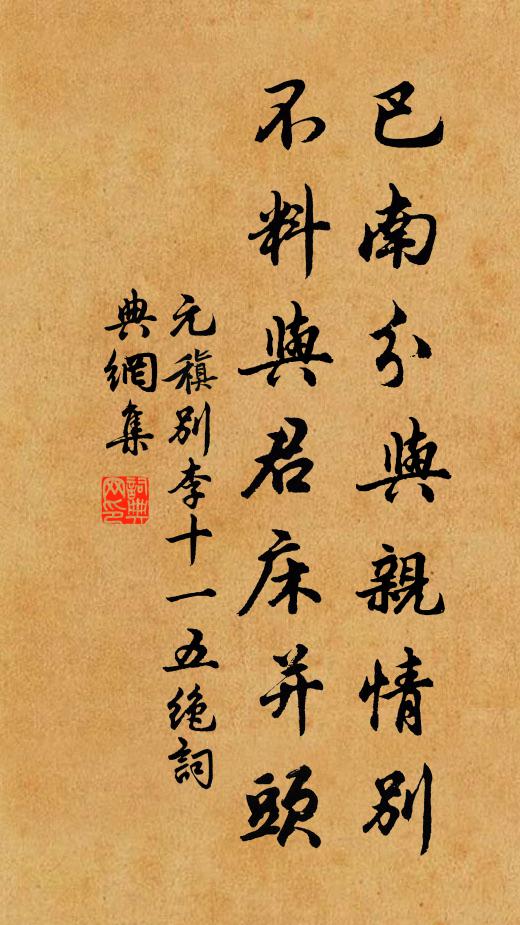 巴南分與親情別
不料與君床并頭
元稹別李十一五絶詞
典網集
詞典
网印